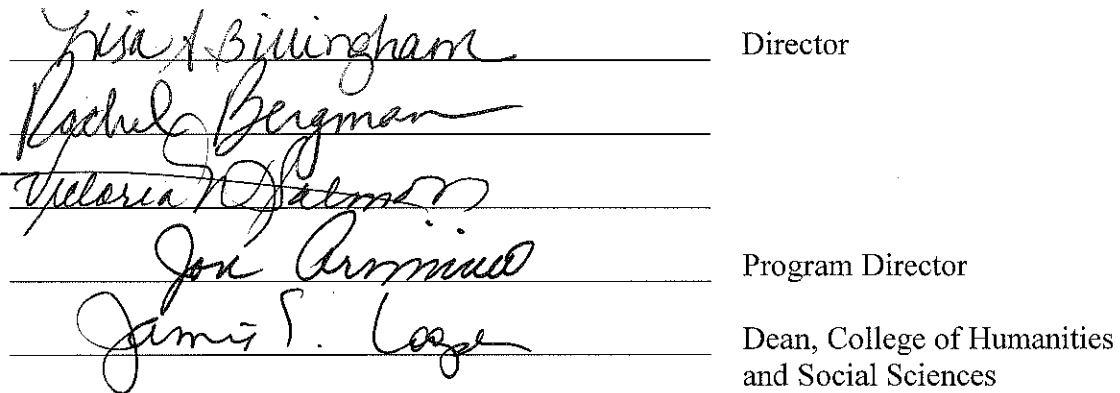 Lisa A Billingham Director
Rachel Bergman
Victoria N Salmon
Program Director
James T. Dean, College of Humanities
and Social Sciences